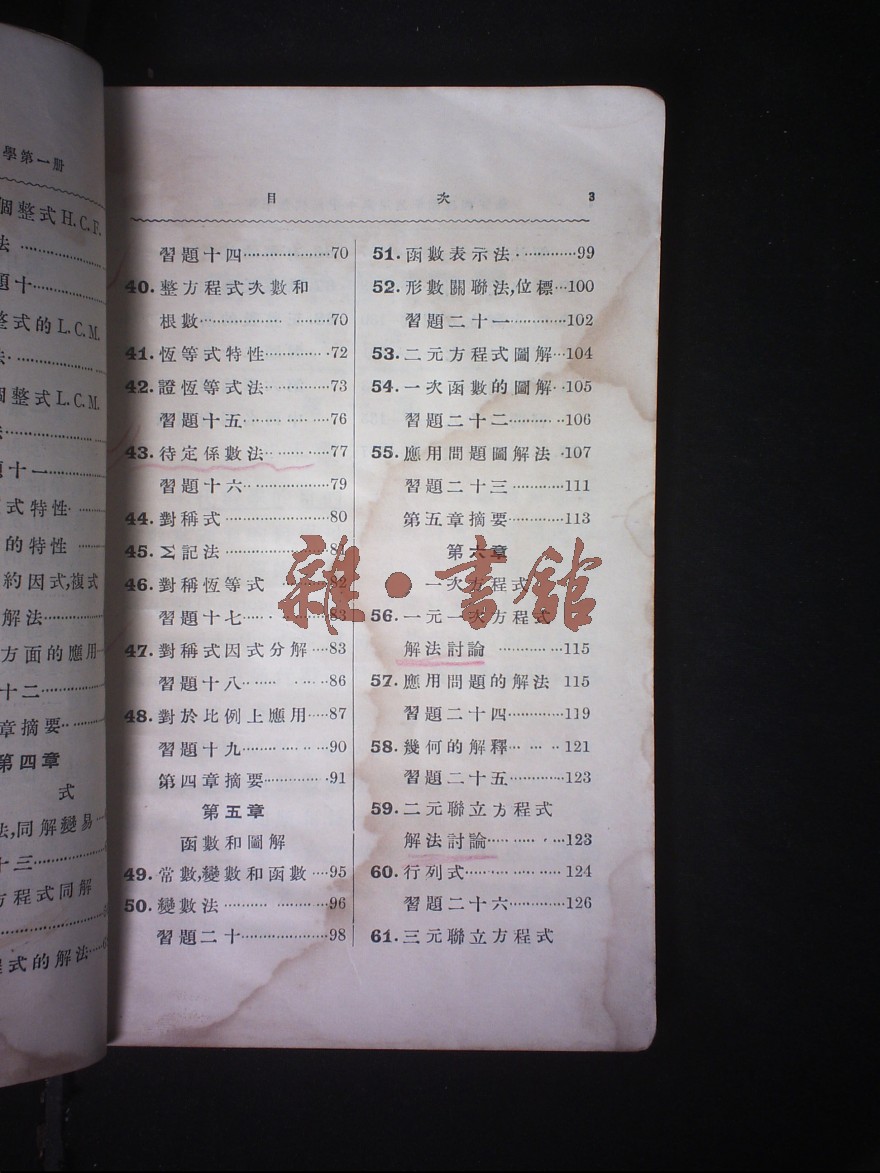 學第一册
個整式H.C.F.
法
題十
整式的L.C.M.
法
個整式L.C.M.
題十一
式特性
的特性
約因式,複式
解法
方面的應用
十二
章摘要
第四章
式
法,同解變易
十三
方程式同解
程式的解法
目 次 3
習題十四………………70
40.整方程式次數和
根數………………70
41.恆等式特性…………72
42.證恆等式法…………73
習題十五……………76
43.待定係數法…………77
習題十六……………79
44.對稱式………………80
45.Σ記法………………81
46.對稱恆等式…………82
習題十七……………83
47.對稱式因式分解……83
習題十八……………86
48.對於比例上應用……87
習題十九……………90
第四章摘要…………91
第五章
函數和圖解
49.常數,變數和函數……95
50.變數法………………96
習題二十……………98
51.函數表示法…………99
52.形數關聯法,位標…100
習題二十一…………102
53.二元方程式圖解…104
54.一次函數的圖解…105
習題二十二…………106
55.應用問題圖解法…107
習題二十三…………111
第五章摘要…………113
第六章
一次方程式
56.一元一次方程式
解法討論……………115
57.應用問題的解法 115
習題二十四…………119
58.幾何的解釋…………121
習題二十五…………123
59.二元聯立方程式
解法討論……………123
60.行列式………………124
習題二十六…………126
61.三元聯立方程式
雜·書館